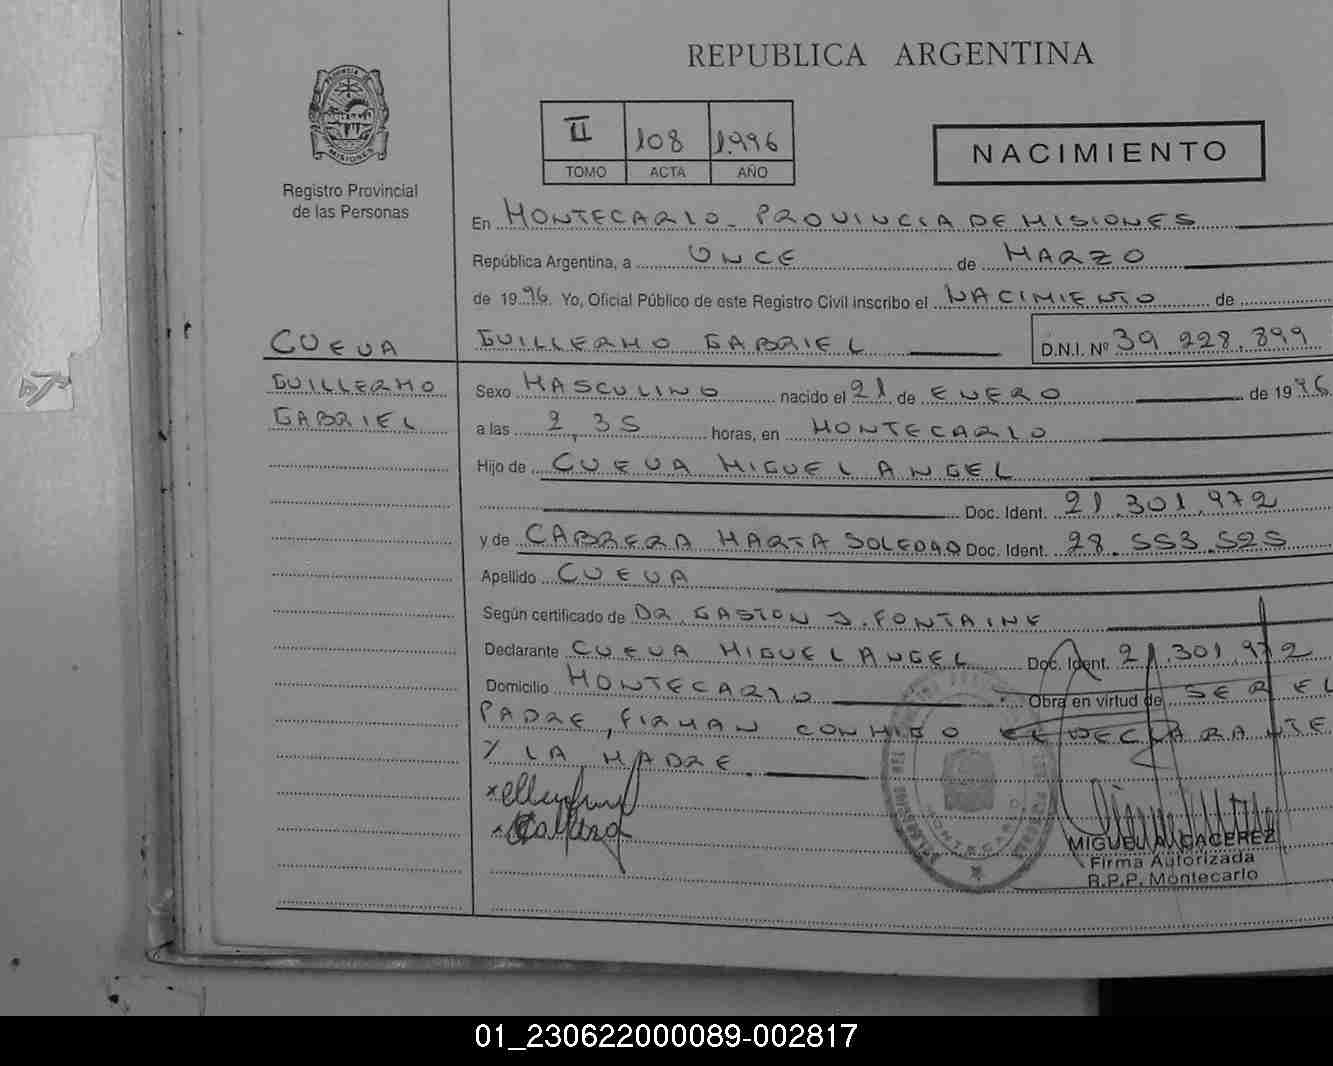 REPUBLICA ARGENTINA
PROVINCIA
MISIONES
Registro Provincial
de las Personas
II 108 1996
TOMO ACTA AÑO
NACIMIENTO
En MONTECARLO. PROVINCIA DE MISIONES
República Argentina, a ONCE de MARZO
de 1996. Yo, Oficial Público de este Registro Civil inscribo el NACIMIENTO de
CUEVA GUILLERMO GABRIEL D.N.I. Nº 39.228.899
GUILLERMO Sexo MASCULINO nacido el 21 de ENERO de 1996
GABRIEL a las 2,35 horas, en MONTECARLO
Hijo de CUEVA MIGUEL ANGEL
Doc. Ident. 21.301.972
y de CABRERA MARTA SOLEDAD Doc. Ident. 28.553.525
Apellido CUEVA
Según certificado de DR. GASTON J. FONTAINE
Declarante CUEVA MIGUEL ANGEL Doc. Ident. 21.301.972
Domicilio MONTECARLO Obra en virtud de SER EL
PADRE, FIRMAN CONMIGO EL DECLARANTE
Y LA MADRE.
MONTECARLO
MIGUEL A. CACEREZ
Firma Autorizada
R.P.P. Montecarlo
01_230622000089-002817